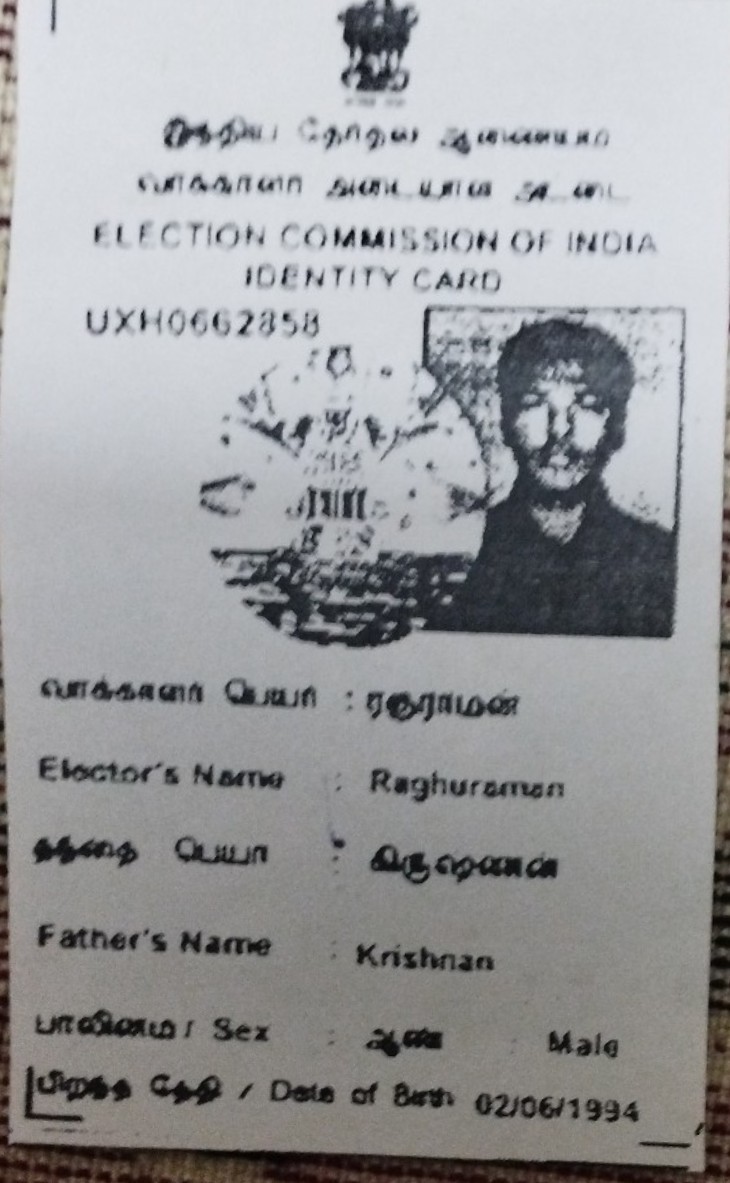 இந்திய தேர்தல் ஆணையம்
வாக்காளர் அடையாள அட்டை
ELECTION COMMISSION OF INDIA
IDENTITY CARD
UXH0662858
வாக்காளர் பெயர் : ரகுராமன்
Elector's Name : Raghuraman
தந்தை பெயர் : கிருஷ்ணன்
Father's Name : Krishnan
பாலினம் / Sex : ஆண் : Male
பிறந்த தேதி / Date of Birth 02/06/1994